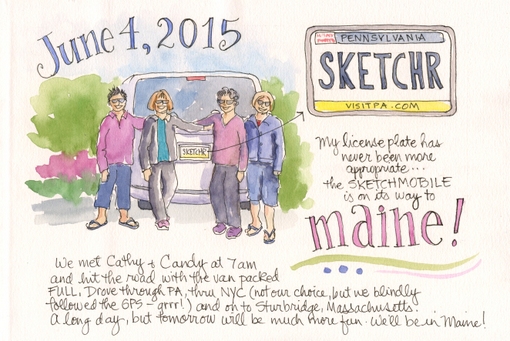 June 4, 2015
PENNSYLVANIA
SKETCHR
VISITPA.COM
SKETCHR
My license plate has
never been more
appropriate...
the SKETCHMOBILE
is on its way to
maine!
We met Cathy + Candy at 7am
and hit the road with the van packed
FULL. Drove through PA, thru NYC (not our choice, but we blindly
followed the GPS - grrr!) and on to Sturbridge, Massachusetts.
A long day, but tomorrow will be much more fun. We'll be in Maine!